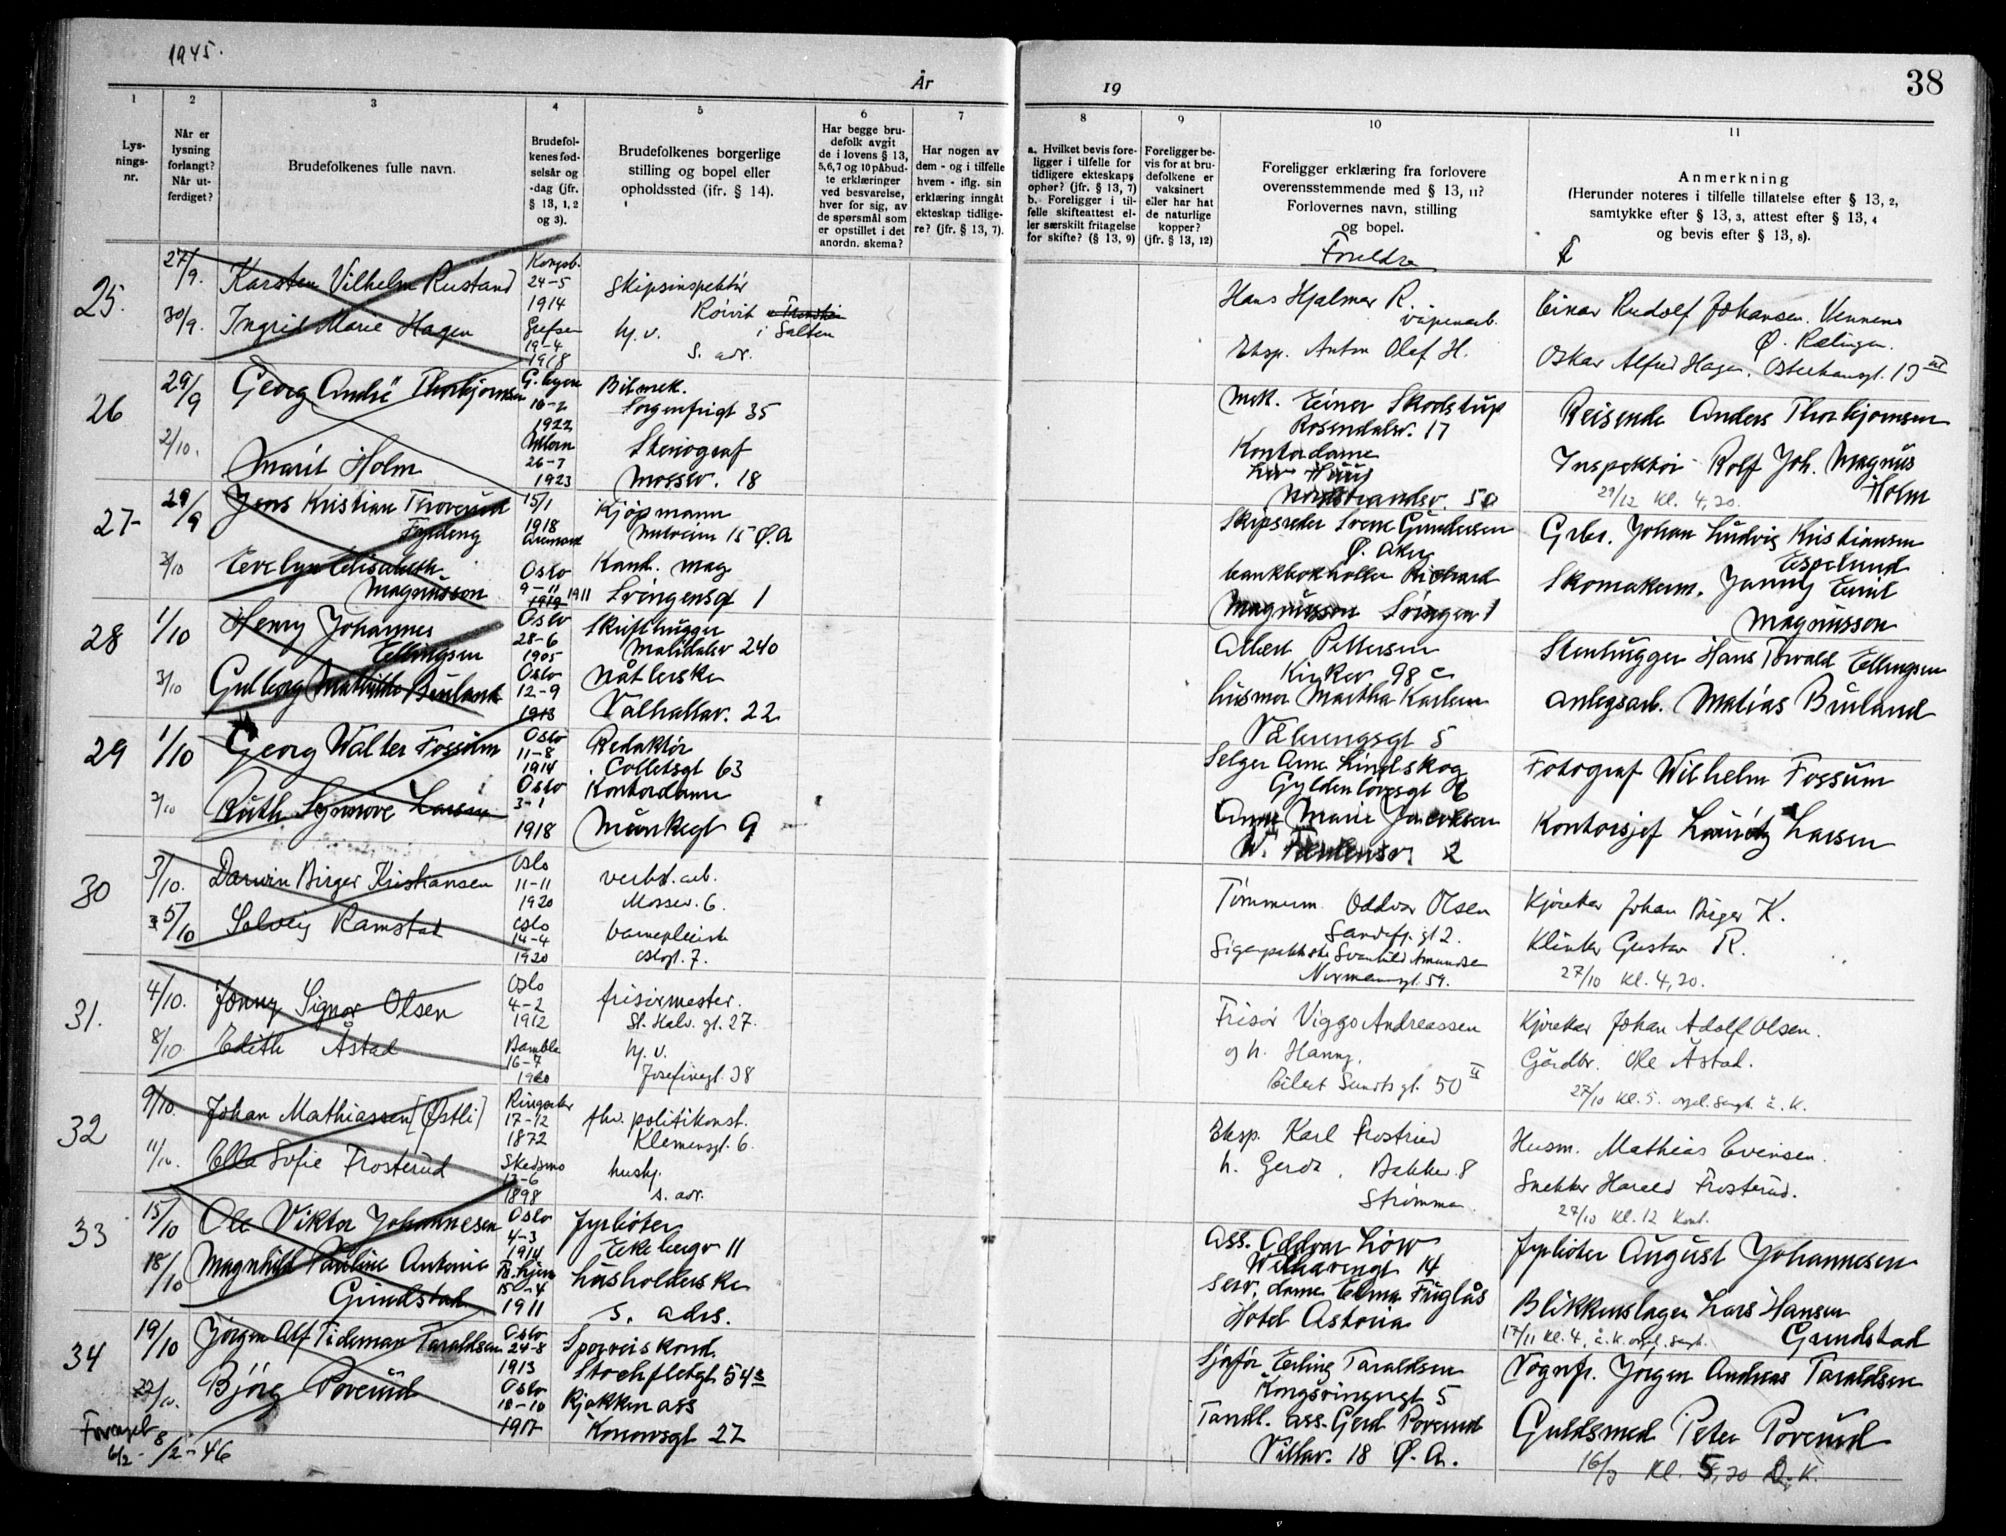 1945.
År
19
38
1
2
3
4
5
6
7
8
9
10
11
Lys-
nings-
nr.
Når er
lysning
forlangt?
Når ut-
ferdiget?
Brudefolkenes fulle navn.
Brudefol-
kenes fød-
selsår og
-dag (jfr.
§ 13, 1, 2
og 3).
Brudefolkenes borgerlige
stilling og bopel eller
opholdssted (ifr. § 14).
Har begge bru-
defolk avgit
de i lovens § 13,
5,6,7 og 10 påbud-
te erklæringer
ved besvarelse,
hver for sig, av
de spørsmål som
er opstillet i det
anordn. skema?
Har nogen av
dem - og i tilfelle
hvem - iflg. sin
erklæring inngåt
ekteskap tidlige-
re? (jfr. § 13, 7).
a. Hvilket bevis fore-
ligger i tilfelle for
tidligere ekteskaps
ophør? (jfr. § 13, 7)
b. Foreligger i til-
felle skifteattest el-
ler særskilt fritagelse
for skifte? (§ 13, 9)
Foreligger be-
vis for at bru-
defolkene er
vaksinert
eller har hat
de naturlige
kopper?
(jfr. § 13, 12)
Foreligger erklæring fra forlovere
overensstemmende med § 13, 11?
Forlovernes navn, stilling
og bopel.
Foreldre
Anmerkning
(Herunder noteres i tilfelle tillatelse efter § 13, 2,
samtykke efter § 13, 3, attest efter § 13, 4
og bevis efter § 13, 8).
25.
27/9.
Karsten Vilhelm Rustand
Kongsb.
24-5
1914
Skipsinspektør
Røivik
i Salten
Hans Hjalmar R.
våpenarb.
Einar Rudolf Johansen. Vennens
Ø. Rælingen.
30/9.
Ingrid Marie Hagen
Grefsen
19-4
1918
hj. v.
s. adr.
Eksp. Anton Olaf H.
Oskar Alfred Hagen.
26
29/9
Georg André Thorbjørnsen
16-2
1922
Bilmek.
Sorgenfrigt 35
Mek. Einer Skodstup
Rosendalsv. 17
Reisende Anders Thorbjørnsen
2/10.
Marit Holm
26-7
1923
Stenograf
Mossev. 18
Kontordame
Nordstrandsv. 50
Inspektør Rolf Joh. Magnus
Holm
29/12 Kl. 4,20.
27-
29/9
Jens Kristian Thorerud
15/1
1918
Kjøpmann
15 Ø.A
Skipsreder Svene Gundersen
Ø. Aker
Grbr. Johan Ludvig Kristiansen
Espelund
3/10
Evelyn Elisabeth
Magnusson
Oslo
9-11
1919 1911
Kand. mag
Svingensgt 1
bankbokholder Richard
Magnusson Svingen 1
Skomakerm. Janny Emil
Magnusson
28
1/10
Henry Johannes
Ellingsen
Oslo
28-6
1905
Skrifthugger
Maridalsv 240
Albert Pettersen
Kirkev 98 c
Stenhugger Hans Torvald Ellingsen
3/10
Gulborg Mathilde Buuland
Oslo
12-9
1913
Nåtlerske
Valhallav. 22
husmor Martha Karlsen
Vålerengsgt 5
Anlegsarb. Matias Buuland
29
1/10
Georg Walter Fossum
Oslo
11-8
1914
Redaktør
Colletsgt 63
Selger Arne Lindskog
Gyldenløvesgt 6
Fotograf Wilhelm Fossum
2/10
Ruth Synnøve Larsen
Oslo
3-1
1918
Kontordame
Munkegt 9
Anne Marie Jacobsen
2
Kontorsjef Lauritz Larsen
30
3/10.
Darwin Birger Kristiansen
Oslo
11-11
1920
verkst. arb.
Mossev. 6.
Tømmerm. Oddvar Olsen
Sandefj. gt 2.
Kjørekar Johan Birger K.
5/10
Solveig Ramstad
Oslo
14-4
1920
barnepleiersk
Oslogt. 7.
Svanhild Amundsen
Normannsgt. 59.
Klinker Gustav R.
27/10 Kl. 4,20.
31.
4/10.
Jonny Signor Olsen
Oslo
4-2
1912
frisørmester.
St. Halv. gt. 27.
Frisør Viggo Andreassen
Kjørekar Johan Adolf Olsen.
8/10.
Edith Åstad
Bamble
16-7
hj. v.
Josefinegt. 38
og h. Hanny.
Eilert Sundts gt. 50 II
Gårdbr. Ole Åstad.
27/10 Kl. 5.
32
9/10.
Johan Mathiassen [Østli]
Ringsaker
17-12
1872
fhv. politikonst.
Klemensgt. 6.
Eksp. Karl Frosterud
Husm. Mathias Evensen.
11/10.
Ella Sofie Frosterud
Skedsmo
1898
hushj.
s. adr.
h. Gerda, Bakker 8
Strømmen
Snekker Harald Frosterud.
27/10 Kl. 12 Kont.
33
15/10
Ole Viktor Johannesen
Oslo
4-3
1914
fyrbøter
Ekebergv 11
Ass. Oddvar Löw
14
fyrbøter August Johannesen
18/10
Magnhild Pauline Antonie
Grundstad.
15-4
1911
husholderske
s. adrs.
serv. dame Elma Fuglås
Hotel Astoria
Blikkenslager Lars Hansen
Grundstad
17/11 Kl. 4.
34
19/10
Jørgen Alf Tideman Taraldsen
Oslo
24-8
1913
Sporveiskond.
Stockfletgt 54 B
Sjåfør Erling Taraldsen
Kongsvingergt 5
Vognfr. Jørgen Andreas Taraldsen
22/10.
Bjørg Porerud
Oslo
10-10
1917
Kjøkken ass
Konowsgt 27
Tandl. ass. Gerd Porerud
Villav. 18 Ø. A.
Guldsmed Peter Porerud
Kl. 5,20
Fornyet
6/2 - 8/2 - 46